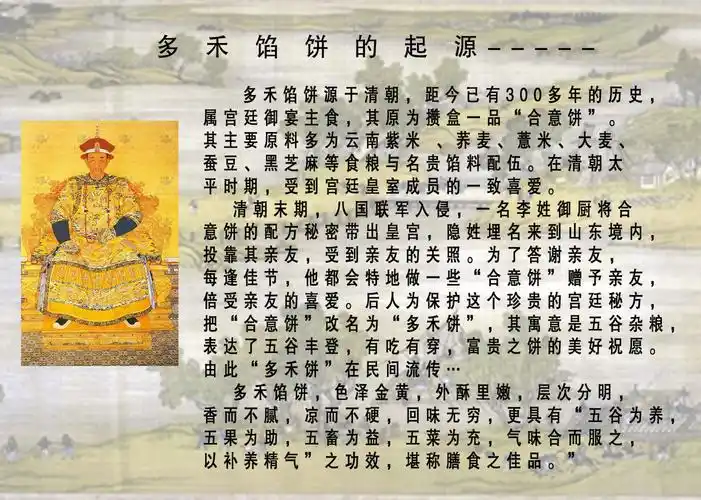 多禾馅饼的起源-----
多禾馅饼源于清朝，距今已有300多年的历史，
属宫廷御宴主食，其原为攒盒一品“合意饼”。
其主要原料多为云南紫米 、荞麦、薏米、大麦、
蚕豆、黑芝麻等食粮与名贵馅料配伍。在清朝太
平时期，受到宫廷皇室成员的一致喜爱。
清朝末期，八国联军入侵，一名李姓御厨将合
意饼的配方秘密带出皇宫，隐姓埋名来到山东境内，
投靠其亲友，受到亲友的关照。为了答谢亲友，
每逢佳节，他都会特地做一些“合意饼”赠予亲友，
倍受亲友的喜爱。后人为保护这个珍贵的宫廷秘方，
把“合意饼”改名为“多禾饼”，其寓意是五谷杂粮，
表达了五谷丰登，有吃有穿，富贵之饼的美好祝愿。
由此“多禾饼”在民间流传…
多禾馅饼，色泽金黄，外酥里嫩，层次分明，
香而不腻，凉而不硬，回味无穷，更具有“五谷为养，
五果为助，五畜为益，五菜为充，气味合而服之，
以补养精气”之功效，堪称膳食之佳品。”